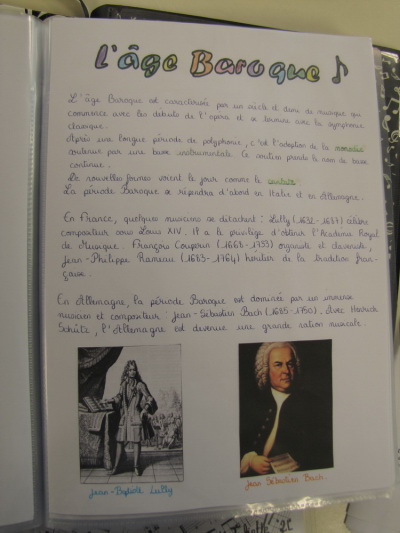 L'âge Baroque
L'âge Baroque est caractérisée par un siècle et demi de musique qui
commence avec les débuts de l'opera et se termine avec la symphonie
classique.
Après une longue période de polyphonie, c'est l'adoption de la monodie
soutenue par une basse instrumentale. Ce soutien prends le nom de basse
continue.
De nouvelles formes voient le jour comme la cantate.
La période Baroque se répendra d'abord en Italie et en Allemagne.
En France, quelques musiciens se détachent : Lully (1632-1687) célèbre
compositeur sous Louis XIV. Il a le privilège d'obtenir l'Académie Royal
de Musique. François Couperin (1668-1733) organiste et claveciniste,
Jean-Philippe Rameau (1683-1764) héritier de la tradition fran-
çaise.
En Allemagne, la période Baroque est dominée par un immense
musicien et compositeur : Jean-Sébastien Bach (1685-1750). Avec Heinrich
Schütz, l'Allemagne est devenue une grande nation musicale.
Jean-Baptiste Lully
Jean Sébastien Bach.